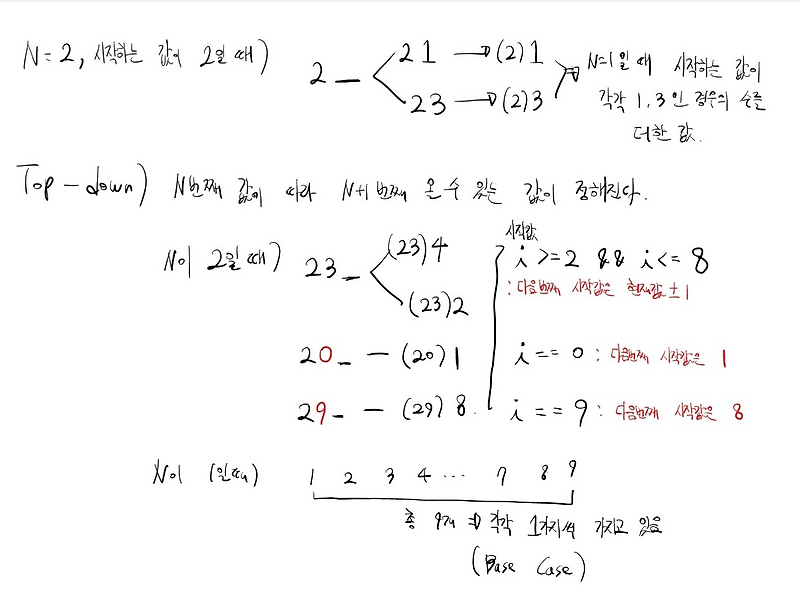 N=2, 시작하는 값이 2일 때)
2 _ 21 → (2)1
23 → (2)3
N=1일 때 시작하는 값이
각각 1, 3인 경우의 수를
더한 값.
Top-down) N번째 값에 따라 N+1번째 올 수 있는 값이 정해진다.
N이 2일 때) 23_ (23)4
(23)2
시작값
i >= 2 && i <= 8
: 다음번째 시작값은 현재값 ±1
20_ — (20)1 i == 0 : 다음번째 시작값은 1
29_ — (29)8. i == 9 : 다음번째 시작값은 8
N이 1일때) 1 2 3 4 ... 7 8 9
총 9개 ⇒ 각각 1가지씩 가지고 있음
(Base Case)